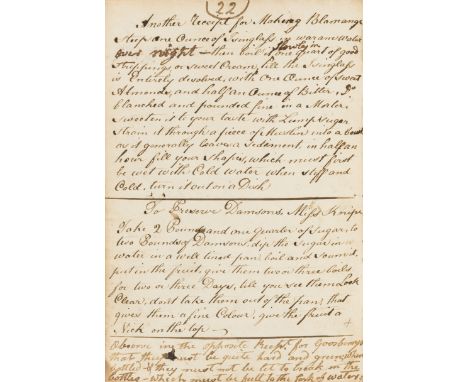 22
Another Receipt for Making Blamange
Steep one Ounce of Isinglass in warm water
over night – then boil it slowly in one quart of good
strippings or sweet Cream, till the Isinglass
is Entirely disolved, with One Ounce of Sweet
Almonds, and half an Ounce of Bitter, Do
blanched and pounded fine in a Mater,
Sweeten it to your taste with Lump Sugar
Strain it through a piece of Muslin into a bowl
as it generally leaves a Sedement in half an
hour fill your Shapes, which must first
be wet with Cold water when stiff and
Cold, turn it out on a Dish
To Preserve Damsons, Miss Knipe
Take 2 Pounds and one Quarter of Sugar, to
two Pounds of Damsons, dip the Sugar in
water in a well lined pan, boil and scum it,
put in the fruit, give them two or three boils
for two or three Days, till you see them look
Clear, dont take them out of the pan, that
gives them a fine Colour, give the fruit a
Nick on the top –
Observe in the opposite Receipt for Goosberrys
that they must be quite hard and green, when
bottled & they must not be let to break in the
bottles – which must be full to the Cork of water.